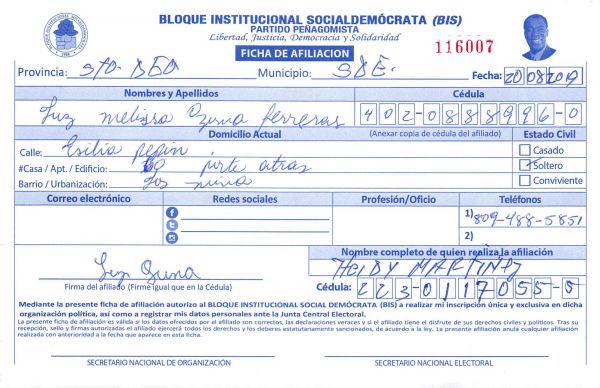 BLOQUE INSTITUCIONAL SOCIALDEMÓCRATA (BIS)
PARTIDO PEÑAGOMISTA
Libertad, Justicia, Democracia y Solidaridad
FICHA DE AFILIACION
116007
Provincia: Sto-Dgo Municipio: SDE. Fecha: 20082019
Nombres y Apellidos Cédula
Luz melissa ferreras 402-0888996-0
Domicilio Actual (Anexar copia de cédula del afiliado) Estado Civil
Calle: Casado
#Casa / Apt. / Edificio: prte atras Soltero
Barrio / Urbanización: Los mina Conviviente
Correo electrónico Redes sociales Profesión/Oficio Teléfonos
1) 809-488-5851
2)
Nombre completo de quien realiza la afiliación
HEIDY MARTINEZ
Luz
Firma del afiliado (Firme igual que en la Cédula) Cédula: 223-0117055-5
Mediante la presente ficha de afiliación autorizo al BLOQUE INSTITUCIONAL SOCIAL DEMÓCRATA (BIS) a realizar mi inscripción única y exclusiva en dicha
organización política, así como a registrar mis datos personales ante la Junta Central Electoral.
La presente ficha de afiliación es válida si los datos ofrecidos por el afiliado son correctos, las declaraciones veraces y si el afiliado tiene el disfrute de sus derechos civiles y políticos. Tras su
recepción, sello y firmas autorizadas el afiliado ejercerá todos los derechos y los deberes estatutariamente sancionados, de acuerdo a la ley. La presente afiliación anula cualquier afiliación
realizada con anterioridad a la fecha que aparece en esta ficha.
SECRETARIO NACIONAL DE ORGANIZACIÓN SECRETARIO NACIONAL ELECTORAL